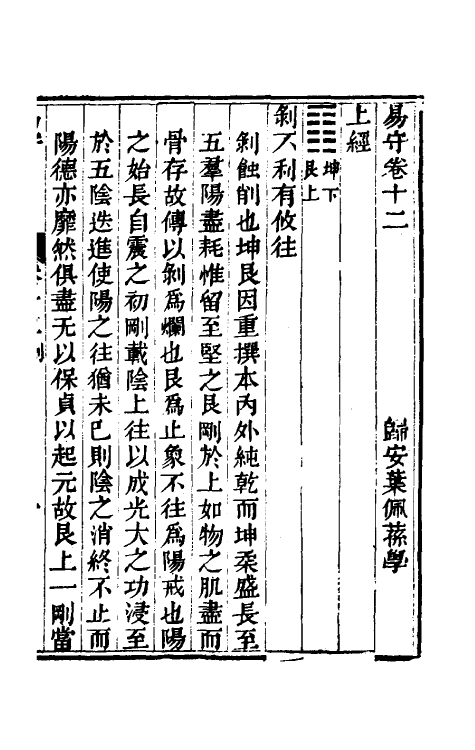 易守卷十二 歸安葉佩蓀學
上經
䷖ 坤下 艮上
剝不利有攸往
剝蝕削也坤艮因重撰本內外純乾而坤柔盛長至
五羣陽盡耗惟留至堅之艮剛於上如物之肌盡而
骨存故傳以剝爲爛也艮爲止象不往爲陽戒也陽
之始長自震之初剛載陰上往以成光大之功浸至
於五陰迭進使陽之往猶未已則陰之消終不止而
陽德亦靡然俱盡无以保貞以起元故艮上一剛當